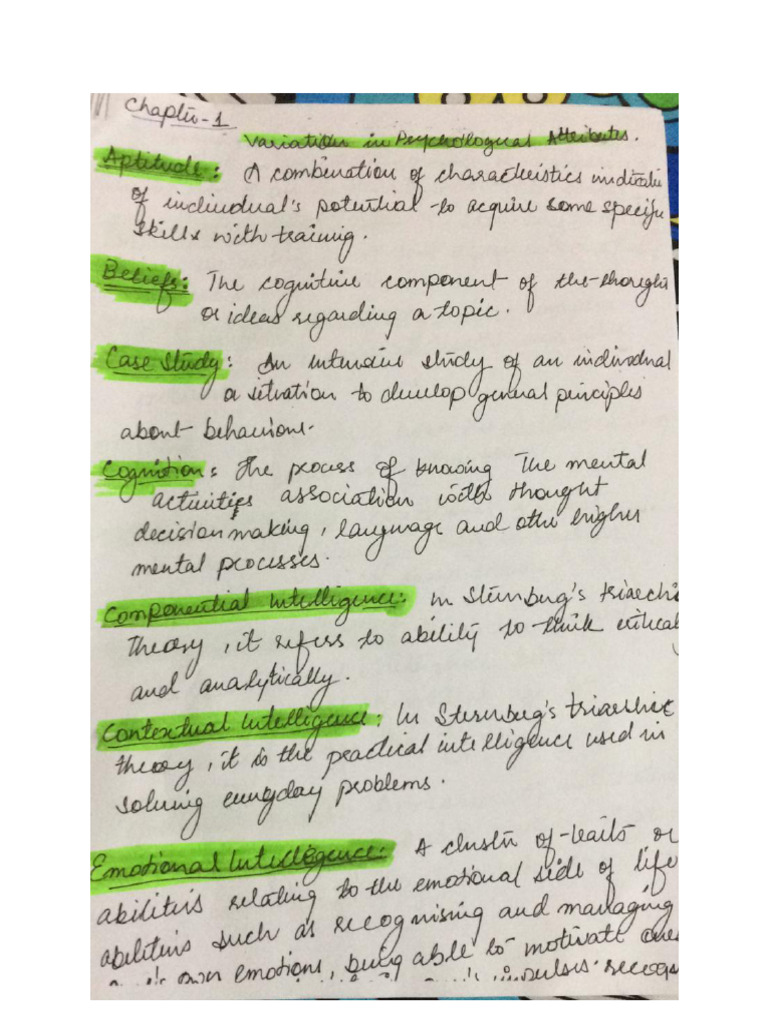 Chapter-1
Variation in Psychological Attributes.
Aptitude: A combination of characteristics indicative
of individual's potential to acquire some specific
skills with training.
Beliefs: The cognitive component of the thought
or ideas regarding a topic.
Case Study: An intensive study of an individual
or situation to develop general principles
about behaviour.
Cognition: The process of knowing The mental
activities association with thought
decision making, language and other higher
mental processes.
Componential Intelligence: In Sternburg's triarchic
Theory, it refers to ability to think critical
and analytically.
Contextual Intelligence: In Sternburg's triarchic
theory, it is the practical intelligence used in
solving everyday problems.
Emotional Intelligence: A cluster of traits or
abilities relating to the emotional side of life
abilities such as recognising and managing
own emotions, being able to motivate
impulses